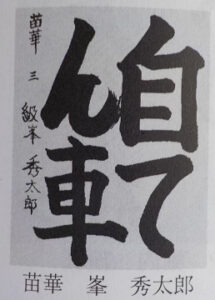 自て
ん車
苗華 三 級 峯 秀太郎
苗華 峯 秀太郎